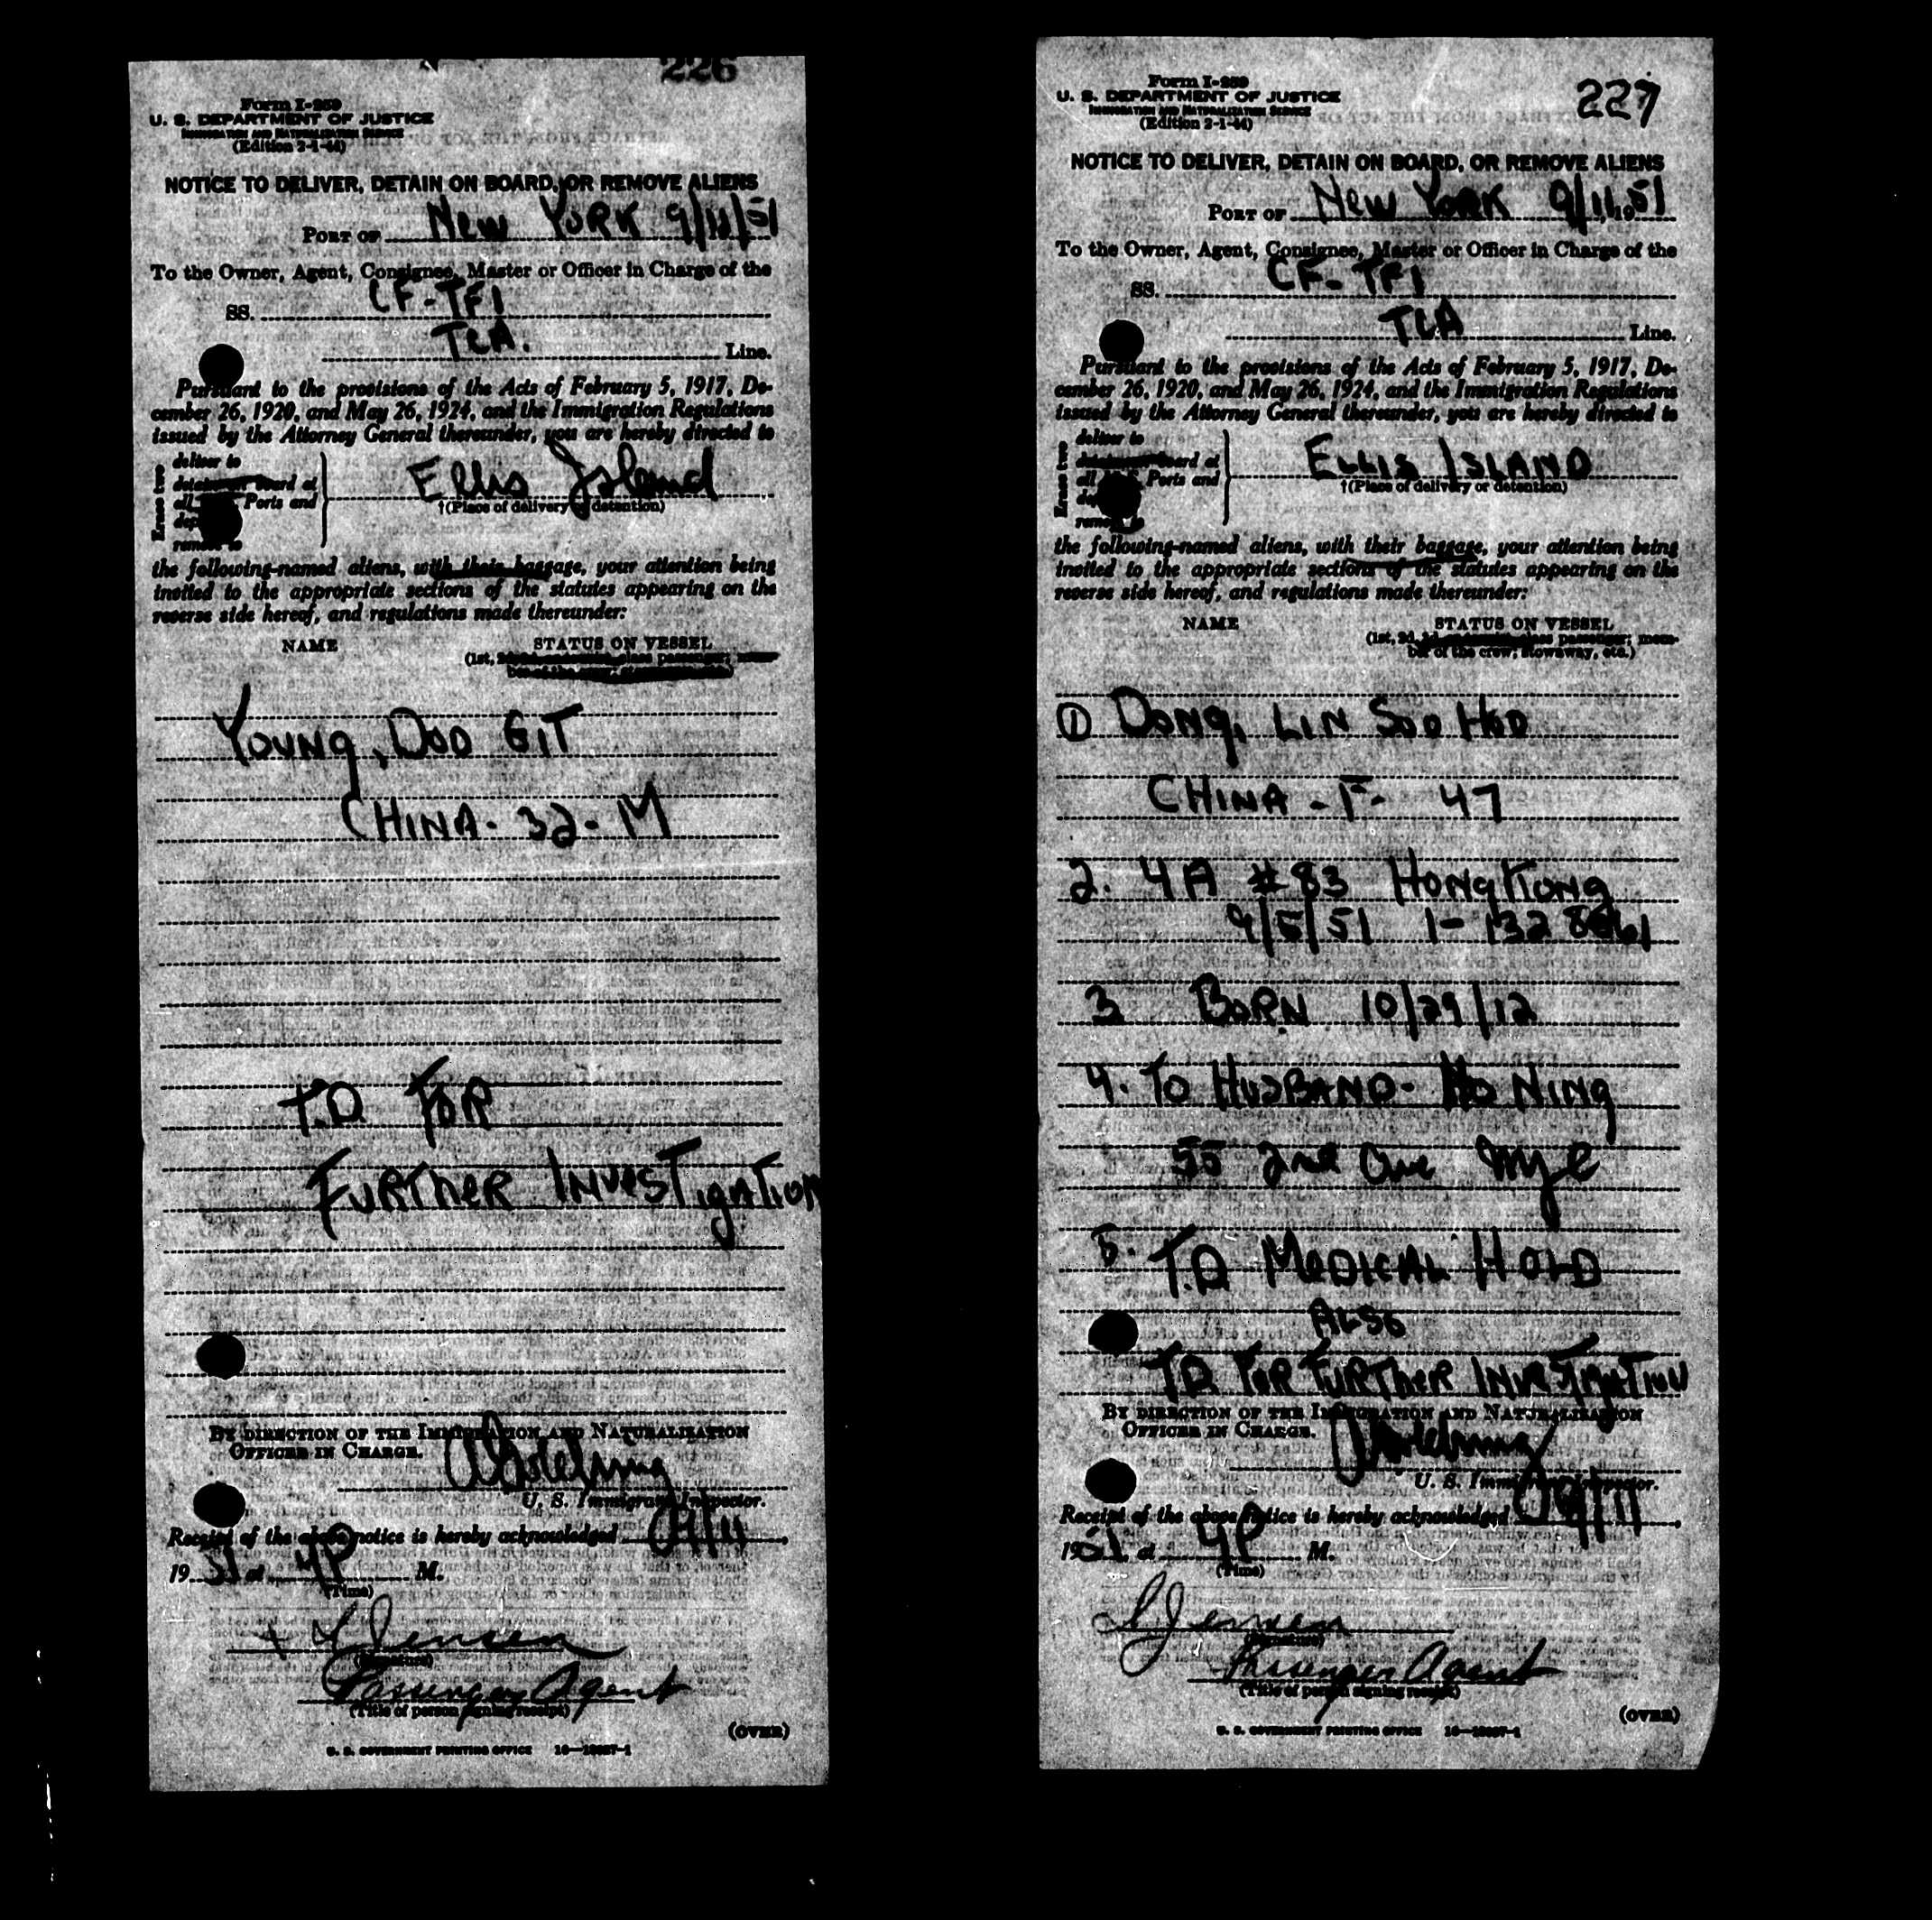 226
Form I-259
U. S. DEPARTMENT OF JUSTICE
IMMIGRATION AND NATURALIZATION SERVICE
(Edition 2-1-44)
NOTICE TO DELIVER, DETAIN ON BOARD, OR REMOVE ALIENS
PORT OF New YORK 9/11/51
To the Owner, Agent, Consignee, Master or Officer in Charge of the
SS. CF-TFI
TCA. Line.
Pursuant to the provisions of the Acts of February 5, 1917, De-
cember 26, 1920, and May 26, 1924, and the Immigration Regulations
issued by the Attorney General thereunder, you are hereby directed to
Erase two
deliver to
board at
all Ports and
remove to
Ellis Island
†(Place of delivery or detention)
the following-named aliens, with their baggage, your attention being
invited to the appropriate sections of the statutes appearing on the
reverse side hereof, and regulations made thereunder:
NAME STATUS ON VESSEL
(1st,
YOUNG, DOO GIT
CHINA - 32 - M
T.D. FOR
FURTHER INVESTIGATION
BY DIRECTION OF THE IMMIGRATION AND NATURALIZATION
OFFICER IN CHARGE.
U. S. Immigrant Inspector.
Receipt of the above notice is hereby acknowledged 9/11,
19 51 at 4P M.
(Time)
Jensen
(Signature)
Passenger Agent
(Title of person signing receipt)
(OVER)
U. S. GOVERNMENT PRINTING OFFICE
227
Form I-259
U. S. DEPARTMENT OF JUSTICE
IMMIGRATION AND NATURALIZATION SERVICE
(Edition 2-1-44)
NOTICE TO DELIVER, DETAIN ON BOARD, OR REMOVE ALIENS
PORT OF New YORK 9/11, 1951
To the Owner, Agent, Consignee, Master or Officer in Charge of the
SS. CF-TFI
TCA Line.
Pursuant to the provisions of the Acts of February 5, 1917, De-
cember 26, 1920, and May 26, 1924, and the Immigration Regulations
issued by the Attorney General thereunder, you are hereby directed to
Erase two
deliver to
board at
all Ports and
remove to
ELLIS ISLAND
†(Place of delivery or detention)
the following-named aliens, with their baggage, your attention being
invited to the appropriate sections of the statutes appearing on the
reverse side hereof, and regulations made thereunder:
NAME STATUS ON VESSEL
(1st, 2d, passenger; mem-
ber of the crew; stowaway, etc.)
① DONG, LIN SOO HOO
CHINA - F - 47
2. 4A #83 HONG KONG
9/5/51
3 BORN 10/29/12
4. TO HUSBAND - HO NING
55 2nd Ave NYC
5. T.D. MEDICAL HOLD
ALSO
T.D. FOR FURTHER INVESTIGATION
BY DIRECTION OF THE IMMIGRATION AND NATURALIZATION
OFFICER IN CHARGE.
U. S. Immigrant Inspector.
Receipt of the above notice is hereby acknowledged 9/11,
1951, at 4P M.
(Time)
Jensen
(Signature)
Passenger Agent
(Title of person signing receipt)
(OVER)
U. S. GOVERNMENT PRINTING OFFICE